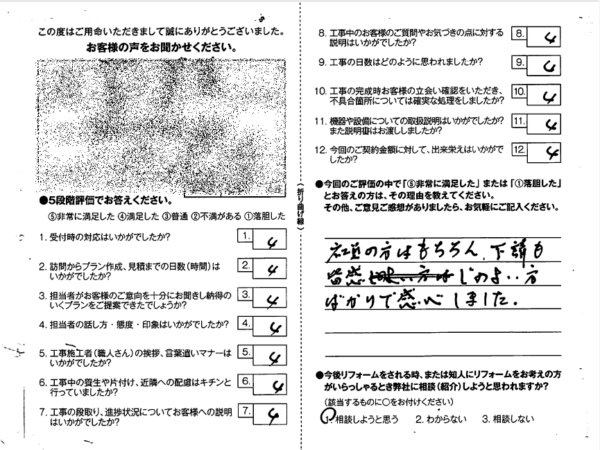 この度はご用命いただきまして誠にありがとうございました。
お客様の声をお聞かせください。
●5段階評価でお答えください。
⑤非常に満足した ④満足した ③普通 ②不満がある ①落胆した
1. 受付時の対応はいかがでしたか?
1. 4
2. 訪問からプラン作成、見積までの日数(時間)は
いかがでしたか?
2. 4
3. 担当者がお客様のご意向を十分にお聞きし納得の
いくプランをご提案できたでしょうか?
3. 4
4. 担当者の話し方・態度・印象はいかがでしたか?
4. 4
5. 工事施工者(職人さん)の挨拶、言葉遣いマナーは
いかがでしたか?
5. 4
6. 工事中の養生や片付け、近隣への配慮はキチンと
行っていましたか?
6. 4
7. 工事の段取り、進捗状況についてお客様への説明
はいかがでしたか?
7. 4
(折り曲げ線)
8. 工事中のお客様のご質問やお気づきの点に対する
説明はいかがでしたか?
8. 4
9. 工事の日数はどのように思われましたか?
9.
10. 工事の完成時お客様の立会い確認をいただき、
不具合箇所については確実な処理をしましたか?
10. 4
11. 機器や設備についての取扱説明はいかがでしたか?
また説明書はお渡ししましたか?
11. 4
12. 今回のご契約金額に対して、出来栄えはいかがで
したか?
12. 4
●今回のご評価の中で「⑤非常に満足した」または「①落胆した」
とお答えの方は、その理由を教えてください。
その他、ご意見ご感想がありましたら、お気軽にご記入ください。
社員の方はもちろん、下請も
皆感じのよい方
ばかりで感心しました。
●今後リフォームをされる時、または知人にリフォームをお考えの方
がいらっしゃるとき弊社に相談(紹介)しようと思われますか?
(該当するものに○をお付けください)
1. 相談しようと思う 2. わからない 3. 相談しない